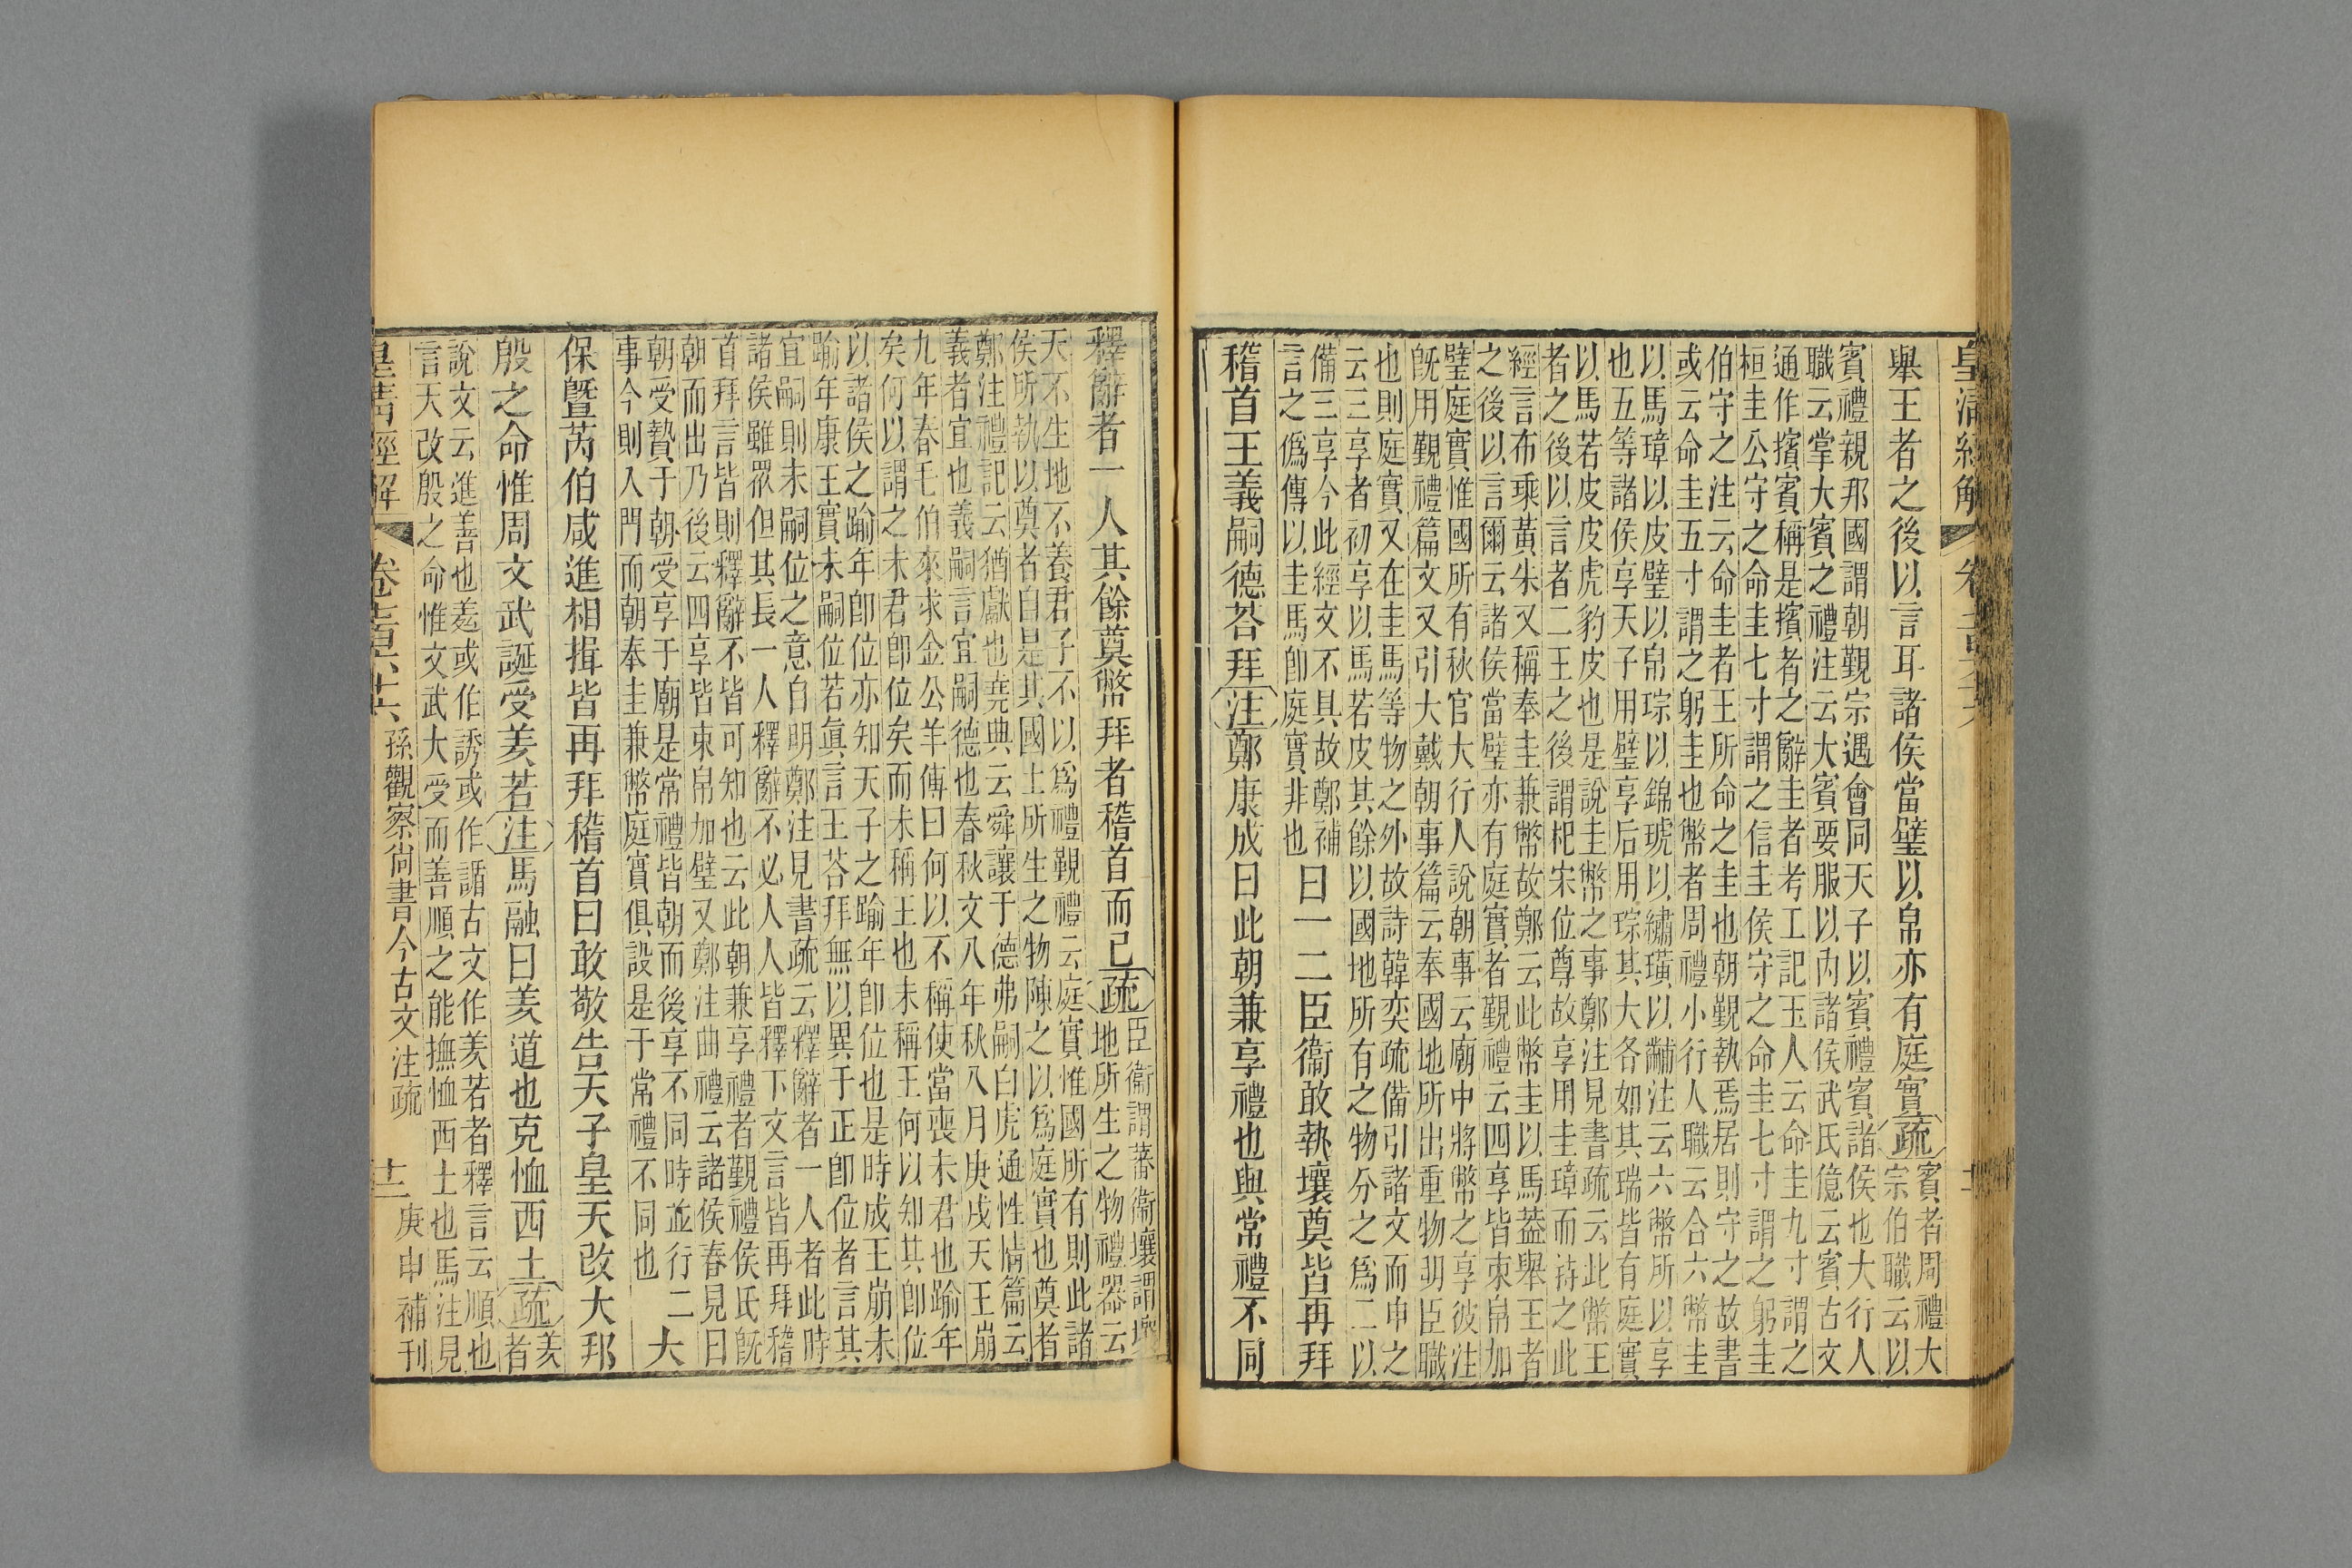 舉王者之後以言耳諸侯當璧以帛亦有庭實疏
賓者周禮大
宗伯職云以
賓禮親邦國謂朝覲宗遇會同天子以賓禮賓諸侯也大行人
職云掌大賓之禮注云大賓要服以內諸侯武氏億云賓古文
通作擯賓稱是擯者之辭圭者考工記玉人云命圭九寸謂之
桓圭公守之命圭七寸謂之信圭侯守之命圭七寸謂之躬圭
伯守之注云命圭者王所命之圭也朝覲執焉居則守之故書
或云命圭五寸謂之躬圭也幣者周禮小行人職云合六幣圭
以馬璋以皮璧以帛琮以錦琥以繡璜以黼注云六幣所以享
也五等諸侯享天子用璧享后用琮其大各如其瑞皆有庭實
以馬若皮皮虎豹皮也是說圭幣之事鄭注見書疏云此幣王
者之後以言者二王之後謂杞宋位尊故享用圭璋而特之此
經言布乘黃朱又稱奉圭兼幣故鄭云此幣圭以馬葢舉王者
之後以言爾云諸侯當璧亦有庭實者覲禮云四享皆束帛加
璧庭實惟國所有秋官大行人說朝事云廟中將幣之享彼注
旣用覲禮篇文又引大戴朝事篇云奉國地所出重物明臣職
也則庭實又在圭馬等物之外故詩韓奕疏備引諸文而申之
云三享者初享以馬若皮其餘以國地所有之物分之爲二以
備三享今此經文不具故鄭補
言之僞傳以圭馬卽庭實非也
曰一二臣衞敢執壤奠皆再拜
稽首王義嗣德荅拜注鄭康成曰此朝兼享禮也與常禮不同
釋辭者一人其餘奠幣拜者稽首而已疏
臣衞謂蕃衞壤謂壤
地所生之物禮器云
天不生地不養君子不以爲禮覲禮云庭實惟國所有則此諸
侯所執以奠者自是其國土所生之物陳之以爲庭實也奠者
鄭注禮記云猶獻也堯典云舜讓于德弗嗣白虎通性情篇云
義者宜也義嗣言宜嗣德也春秋文八年秋八月庚戌天王崩
九年春毛伯來求金公羊傳曰何以不稱使當喪未君也踰年
矣何以謂之未君卽位矣而未稱王也未稱王何以知其卽位
以諸侯之踰年卽位亦知天子之踰年卽位也是時成王崩未
踰年康王實未嗣位若眞言王荅拜無以異于正卽位者言其
宜嗣則未嗣位之意自明鄭注見書疏云釋辭者一人者此時
諸侯雖眾但其長一人釋辭不必人人皆釋下文言皆再拜稽
首拜言皆則釋辭不皆可知也云此朝兼享禮者覲禮侯氏旣
朝而出乃後云四享皆束帛加璧又鄭注曲禮云諸侯春見曰
朝受贄于朝受享于廟是常禮皆朝而後享不同時並行二
事今則入門而朝奉圭兼幣庭實俱設是于常禮不同也
大
保曁芮伯咸進相揖皆再拜稽首曰敢敬告天子皇天改大邦
殷之命惟周文武誕受羑若注馬融曰羑道也克恤西土疏
羑
者
說文云進善也羑或作誘或作䛻古文作羑若者釋言云順也
言天改殷之命惟文武大受而善順之能撫恤西土也馬注見
皇淸經解
孫觀察尚書今古文注疏
十二
庚申補刊